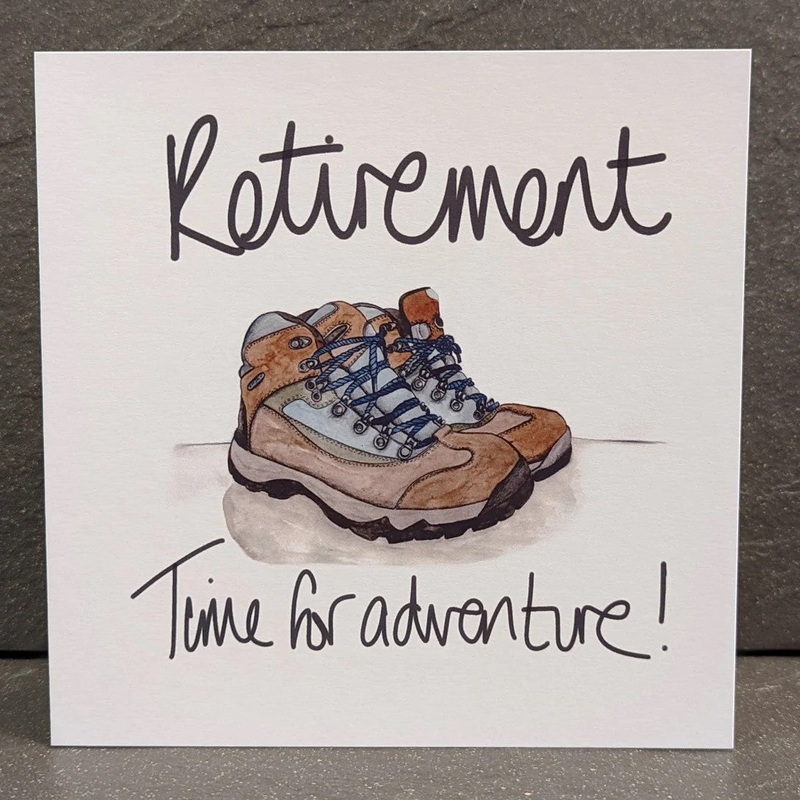 Retirement
Time for adventure!